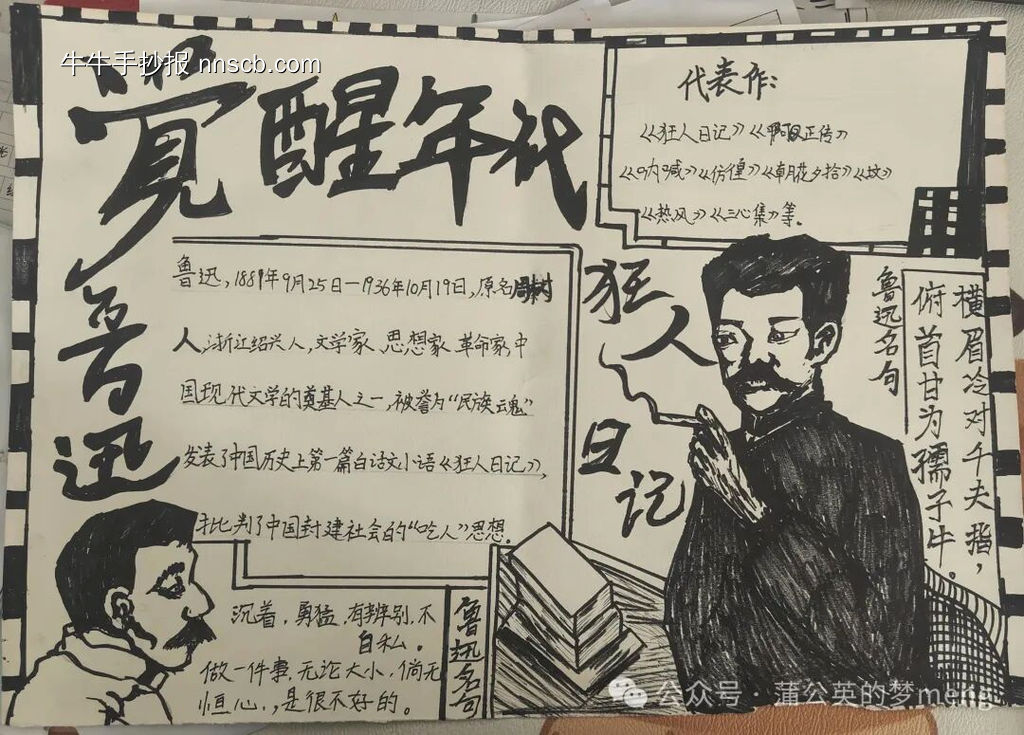 牛牛手抄报 nnscb.com
觉醒年代
鲁迅
代表作：
《狂人日记》《阿Q正传》
《呐喊》《仿徨》《朝花夕拾》《坟》
《热风》《三心集》等。
鲁迅，1881年9月25日—1936年10月19日，原名周树
人，浙江绍兴人，文学家、思想家、革命家，中
国现代文学的奠基人之一，被誉为“民族云魂”
发表了中国历史上第一篇白话文小语《狂人日记》，
批判了中国封建社会的“吃人”思想。
狂人
日记
鲁迅名句
横眉冷对千夫指，
俯首甘为孺子牛。
沉着，勇猛，有辨别，不
自私。
做一件事，无论大小，倘无
恒心，，是很不好的。
鲁迅名句
公众号·蒲公英的梦meng